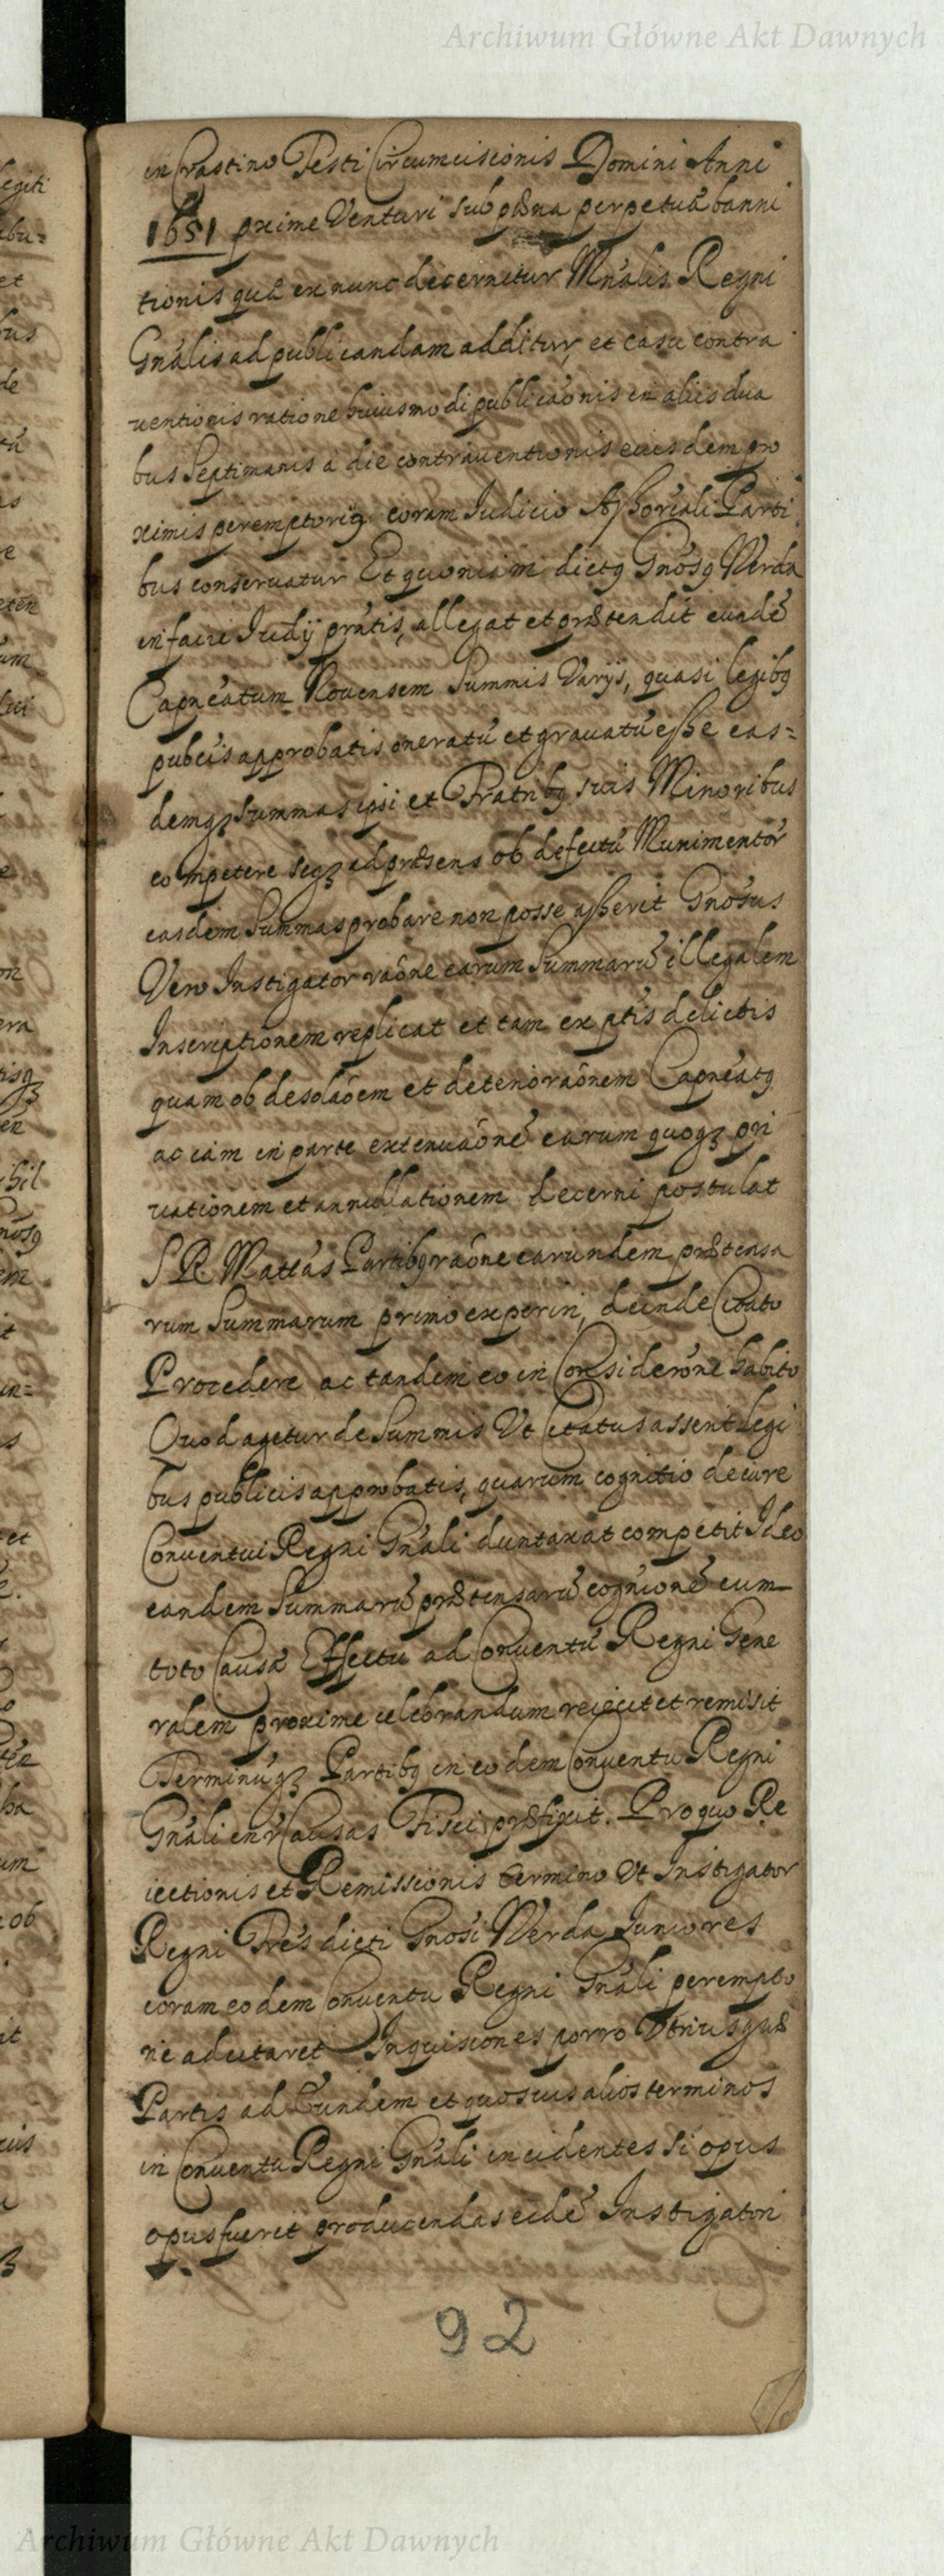 Archiwum Główne Akt Dawnych
in Crastino Festi Circumcisionis Domini Anni
1651 pxime Venturi sub pœna perpetuæ banni
tionis quæ ex nunc decernitur Mnalis Regni
Gnalis ad publicandam additur, et casu contra
uentionis ratione huiusmodi publicaonis in alijs dua
bus Septimanis a die contrauentionis eiusdem pro
ximis peremptorie coram Iudicio Assorali Parti
bus conseruatur Et quoniam dictq Gnosq Werda
in facie Iudij pntis, allegat et prætendit eundē
Capneatum Nouensem Summis Varijs, quasi legibq
pubcis approbatis oneratū et grauatū esse eas=
demqȝ Summas ipsi et Fratribq suis Minoribus
competere seqȝ ad præsens ob defectū Munimentor
easdem Summas probare non posse asserit Gnosus
Vero Instigator raone earum Summarū illegalem
Inscriptionem replicat et tam ex ptis delictis
quam ob desolaoem et deterioraonem Capneatq
ac iam in parte extenuaonē earum quoqȝ pri
uationem et annullationem decerni postulat
S R Mattas Partibq raone earundem prætensa
rum Summarum primo experiri, deinde Citato
Procedere ac tandem eo in Considerone habito
Quod agetur de Summis Vt Citatus asserit legi
bus publicis approbatis, quarum cognitio de iure
Conuentui Regni Gnali duntaxat competit Ideo
eandem Summarū prætensarū cognionē cum
toto Causæ Effectu ad Conuentū Regni Gene
ralem proxime celebrandum reiecit et remisit
Terminūqȝ Partibq in eodem Conuentu Regni
Gnali inr Causas Fisci præfixit. Pro quo Re
iectionis et Remissionis termino Vt Instigator
Regni Fres dicti Gnosi Werda Iuniores
coram eodem Conuentu Regni Gnali perempto
rie adcitaret Inquisiones porro Vtriusque
Partis ad Eundem et quosuis alios terminos
in Conuentu Regni Gnali incidentes Si opus
opus fuerit producendas eidē Instigatori
92
Archiwum Główne Akt Dawnych